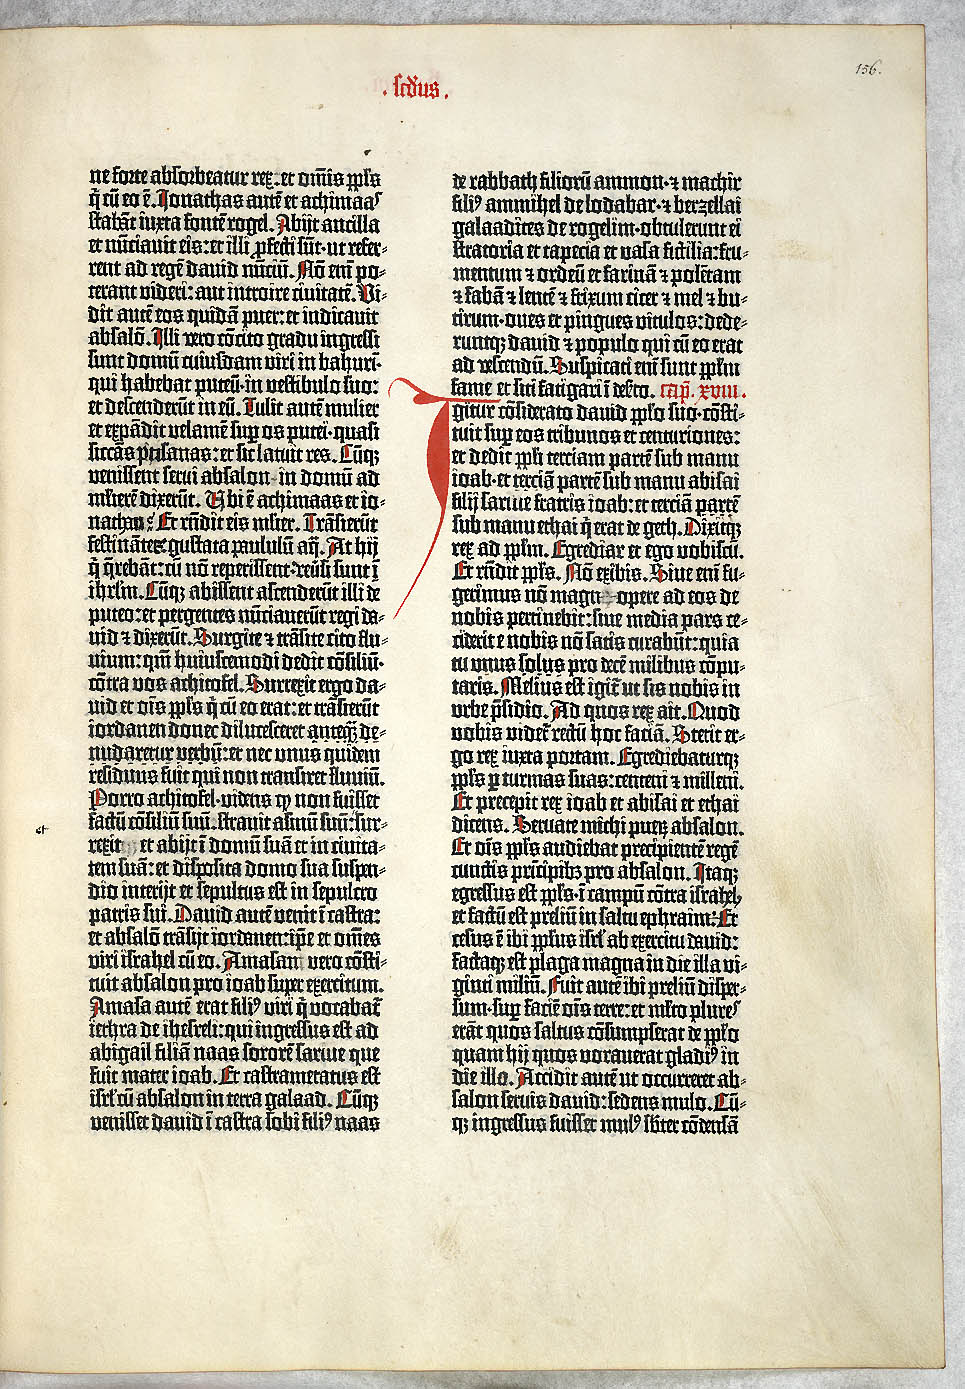 156.
. scd̄us .
ne forte absorbeatur rex. et om̄is ppl̄s
q̄ cū eo ē. Jonathas autē et achimaas
stabāt iuxta fontē rogel. Abijt ancilla
et nūciauit eis: et illi p̄fecti sūt· ut refer-
rent ad regē dauid nūciū. Nō enī po-
terant videri: aut introire ciuitatē. Vi-
dit autē eos quidā puer: et indicauit
absalō. Illi vero cōcito gradu ingressi
sunt domū cuiusdam viri in bahurī·
qui habebat puteū· in vestibulo suo:
et descenderūt in eū. Tulit autē mulier
et expādit velamē sup os putei· quasi
siccās ptisanas: et sic latuit res. Cūqꝫ
venissent serui absalon· in domū ad
mlierē dixerūt. Ubi ē achimaas et io-
nathas? Et rn̄dit eis mlier. Trāsierūt
festinātes gustata paululū aq̄. At hij
q̄ q̄rebāt: cū nō reperissent· reūsi sunt ī
ihrl̄m. Cūqꝫ abissent ascenderūt illi de
puteo: et pergentes nūciauerūt regi da-
uid ⁊ dixerūt. Surgite ⁊ trāsite cito flu-
uium: qm̄ huiuscemodi dedit cōsiliū·
cōtra vos achitofel. Surrexit ergo da-
uid et oīs ppl̄s q̄ cū eo erat: et trāsierūt
iordanen donec dilucesceret anteq̄ƺ de-
nudaretur verbū: et nec unus quidem
residuus fuit qui non transiret fluuiū.
Porro achitofel· videns qƺ non fuisset
factū cōsiliū suū: strauit asinū suū: sur-
et
rexit et abijt ī domū suā et in ciuita-
tem suā: et disposita domo sua suspen-
dio interijt et sepultus est in sepulcro
patris sui. Dauid autē venit ī castra:
et absalō trāsijt iordanen: ipē et om̄es
viri israhel cū eo. Amasam vero cōsti-
tuit absalon pro ioab super exercitum.
Amasa autē erat filiꝰ viri q̄ vocabat᷑
iethra de ihesreli: qui ingressus est ad
abigail filiā naas sororē saruie que
fuit mater ioab. Et castrametatus est
isrl̄ cū absalon in terra galaad. Cūqꝫ
venisset dauid ī castra sobi filiꝰ naas
de rabbath filiorū ammon· ⁊ machir
filiꝰ ammihel de lodabar· ⁊ berzellai
galaadites de rogelim· obtulerunt ei
stratoria et tapecia et vasa fictilia: fru-
mentum ⁊ ordeū et farinā ⁊ polētam
⁊ fabā ⁊ lentē ⁊ frixum cicer ⁊ mel ⁊ bu-
tirum· oues et pingues vitulos: dede-
runtqꝫ dauid ⁊ populo qui cū eo erat
ad vescendū. Suspicati enī sunt ppl̄m
fame et siti fatigari ī deſto. Cap̄. xviii.
Igitur cōsiderato dauid ppl̄o suo· cōsti-
tuit sup eos tribunos et centuriones:
et dedit ppl̄i terciam partē sub manu
ioab· et terciā partē sub manu abisai
filij saruie fratris ioab: et terciā partē
sub manu ethai q̄ erat de geth. Dixitqꝫ
rex ad ppl̄m. Egrediar et ego vobiscū.
Et rn̄dit ppl̄s. Nō exibis. Siue enī fu-
gerimus nō magno opere ad eos de
nobis pertinebit: siue media pars ce-
ciderit e nobis nō satis curabūt: quia
tu vnus solus pro decē milibus cōpu-
taris. Melius est igit᷑ ut sis nobis in
vrbe p̄sidio. Ad quos rex ait. Quod
vobis videt᷑ rectū hoc faciā. Stetit er-
go rex iuxta portam. Egrediebaturqꝫ
ppl̄s p turmas suas: centeni ⁊ milleni.
Et precepit rex ioab et abisai et ethai
dicens. Seruate michi puerꝫ absalon.
Et oīs ppl̄s audiebat precipientē regē
cunctis pricipibꝫ pro absalon. Itaqꝫ
egressus est ppl̄s· ī campū cōtra israhel:
et factū est preliū in saltu ephraim: Et
cesus ē ibi pplus isrl̄ ab exercitu dauid:
factaqꝫ est plaga magna in die illa vi-
ginti miliū. Fuit autē ibi preliū disper-
sum· sup faciē oīs terre: et mlto plures
erāt quos saltus cōsumpserat de ppl̄o
quam hij quos vorauerat gladiꝰ in
die illo. Accidit autē ut occurreret ab-
salon seruis dauid: sedens mulo. Cū-
qꝫ ingressus fuisset mulꝰ sbter cōdensā